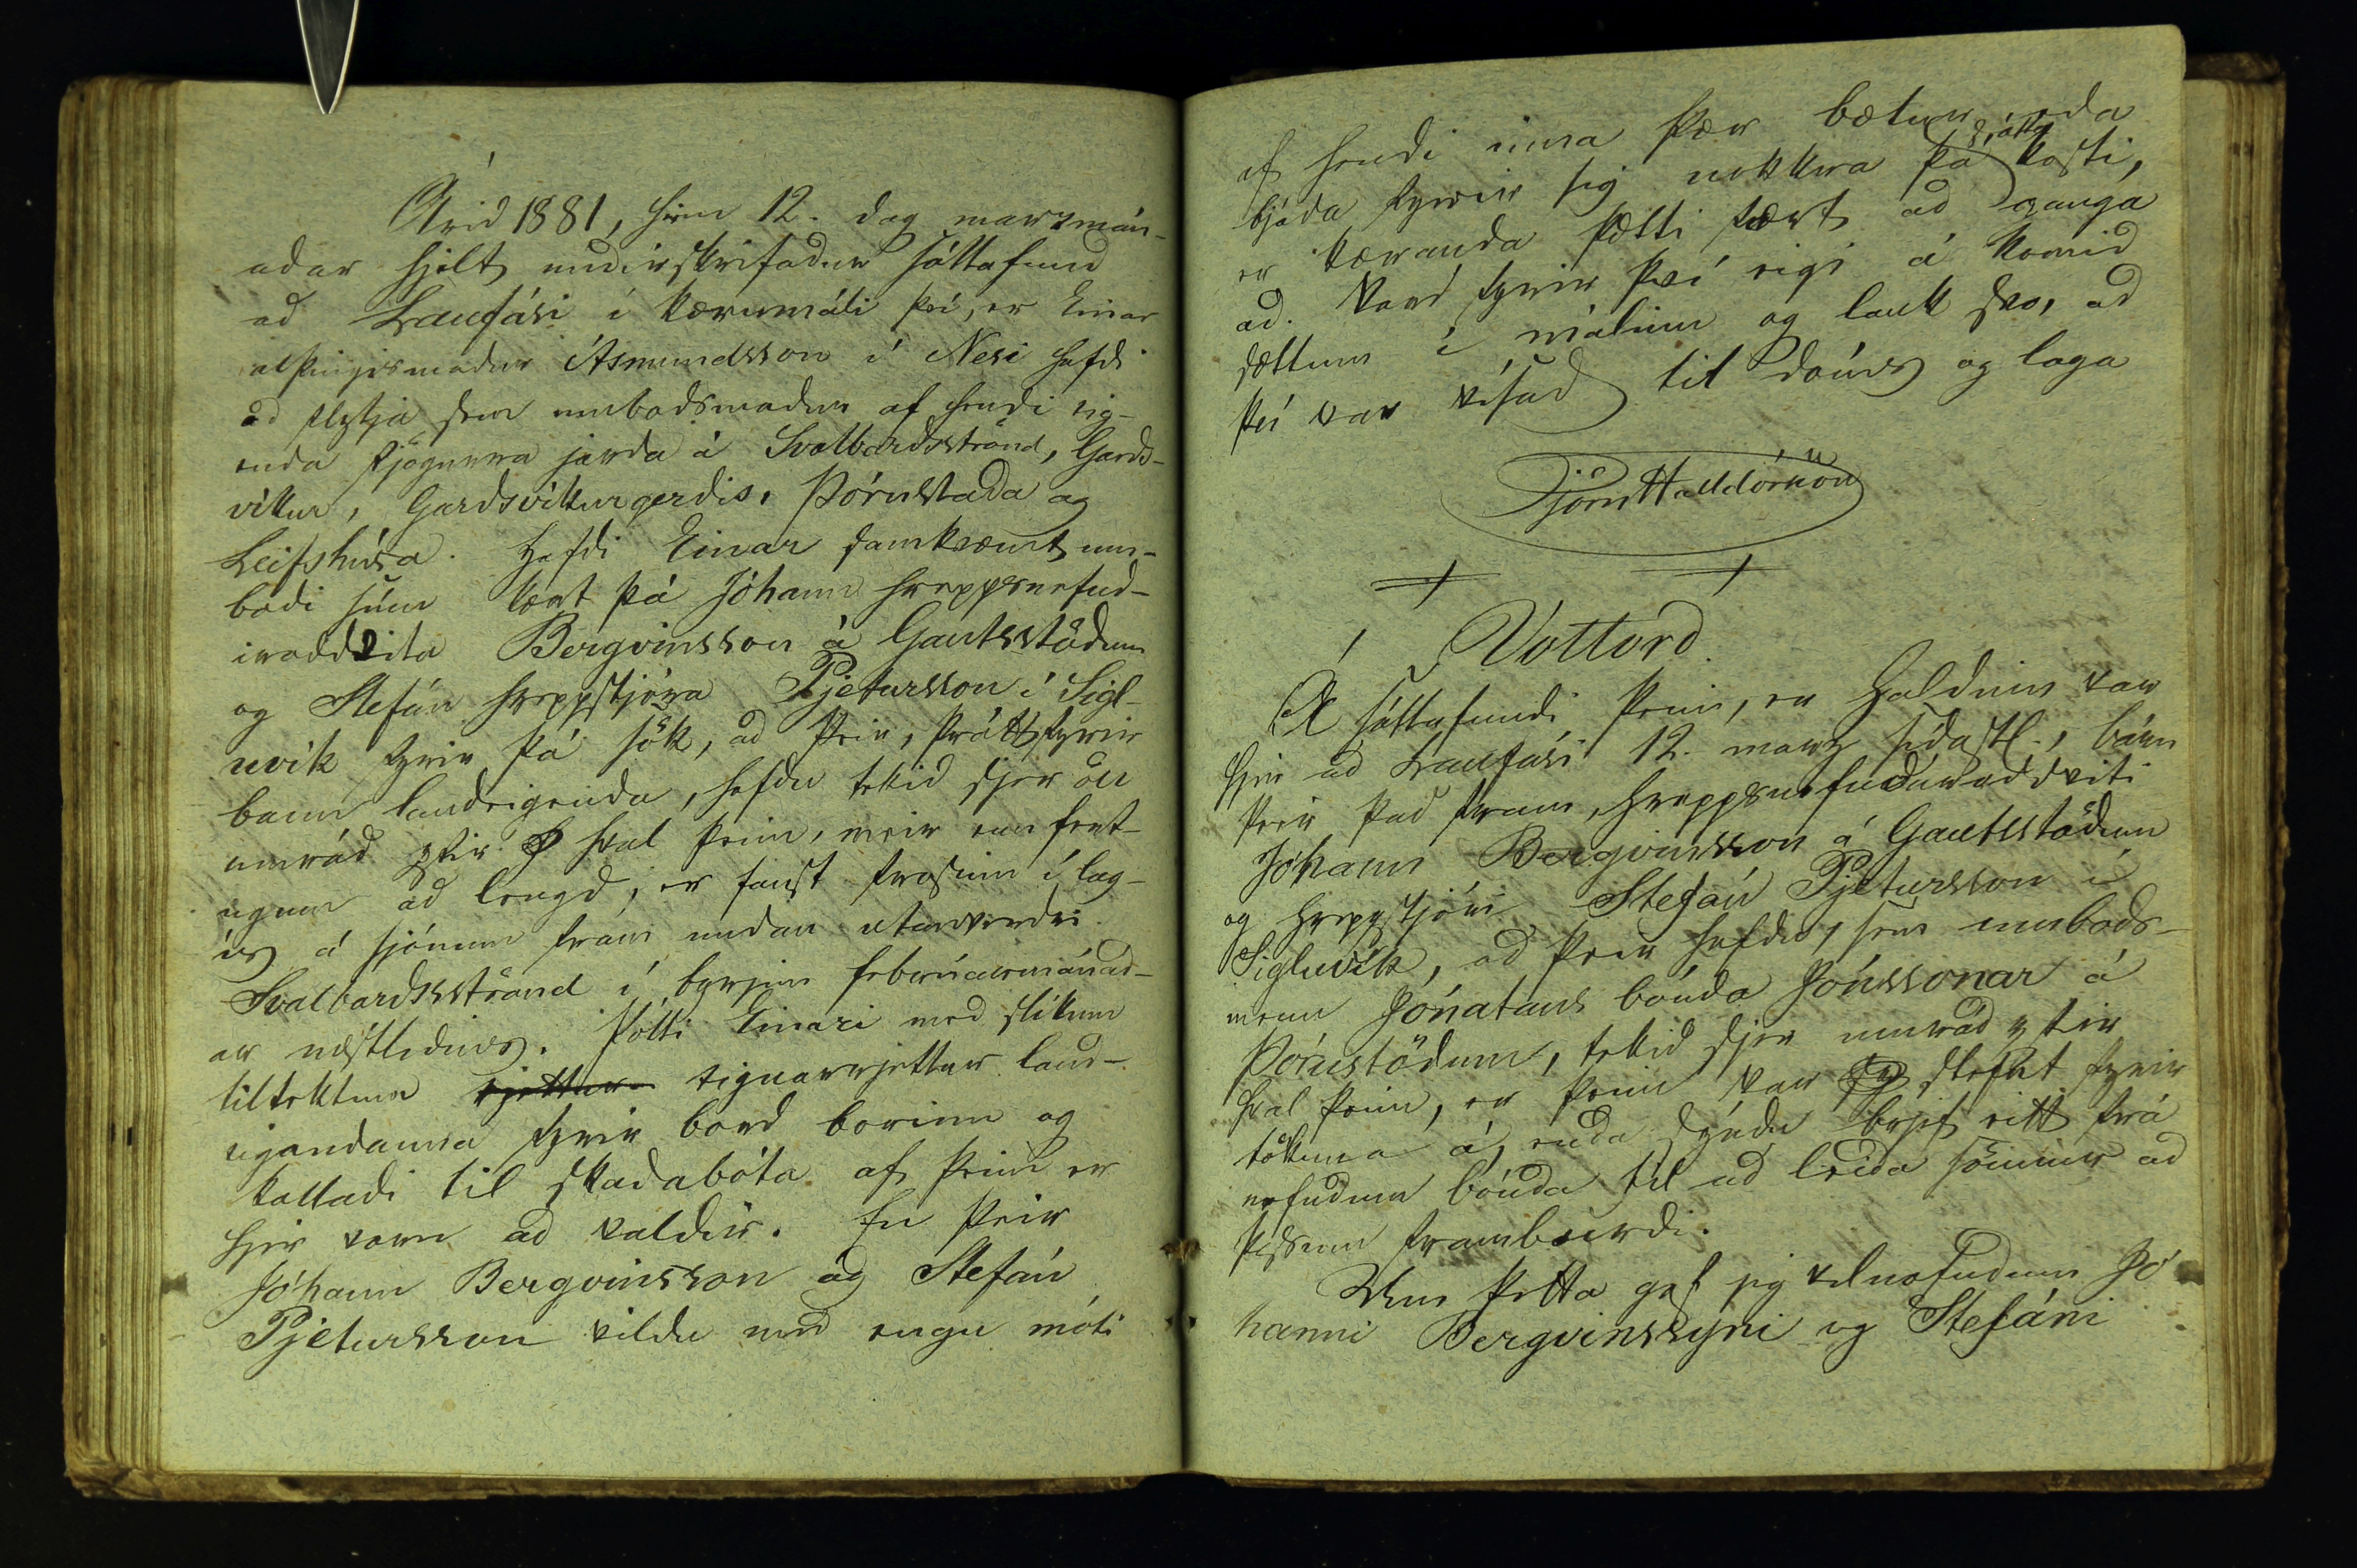 Árið 1881, hinn 12. dag marzmán-
aðar hjelt undirskrifaður sáttafund
að Laufási í kærumáli því, er Einar
alþingismaður Ásmundsson í Nesi hafði
að flytja sem umboðsmaður af hendi eig-
enda fjögurra jarða á Svalbarðsströnd, Garðs-
víkur, Garðsvíkurgerðis, Þórustaða og
Leifshúsa. Hafði Einar samkvæmt um-
boði sínu kært þá Jóhann hreppsnefnd-
aroddvita Bergvinsson á Gautsstöðum
og Stefán hreppstjóra Pjetursson í Sigl-
uvík fyrir þá sök, að þeir, þrátt fyrir
bann landeigenda, hefðu tekið sjer öll
umráð yfir hval þeim, meir enn fert-
ugum að lengd, er fanst frosinn í lag-
ís á sjónum fram undan utanverðri
Svalbarðsströnd í byrjun febrúarmánað-
ar næstliðins. Þótti Einari með slíkum
tiltektum rjettur eignarrjettur land-
eigandanna fyrir borð borinn og
kallaði til skaðabóta af þeim er
hjer voru að valdir. En þeir
Jóhann Bergvinsson og Stefán
Pjetursson vildu með engu móti
af hendi inna þær bætur, eða
bjóða fyrir sig nokkra þá sátta kosti,
er kæranda þætti fært að ganga
að. Varð fyrir því eigi á komið
sættum í málinu og lauk svo, að
því var vísað til dóms og laga
Björn Halldórsson
Vottorð.
Á sáttafundi þeim, er haldinn var
hjer að Laufási 12. marz síðastl., báru
þeir það fram, hreppsnefndaroddviti
Jóhann Bergvinsson á Gautsstöðum
og hreppstjóri Stefán Pjetursson í
Sigluvík, að þeir hefðu, sem umboðs-
menn Jónatans bónda Jónssonar á
Þórustöðum, tekið sjer umráð yfir
hval þeim, er þeim var fy stefnt fyrir
tökuna á, enda sýndu brjef eitt frá
nefndum bónda til að leiða sönnur að
þessum framburði.
Um þetta gef jeg velnefndum Jó
hanni Bergvinssyni og Stefáni